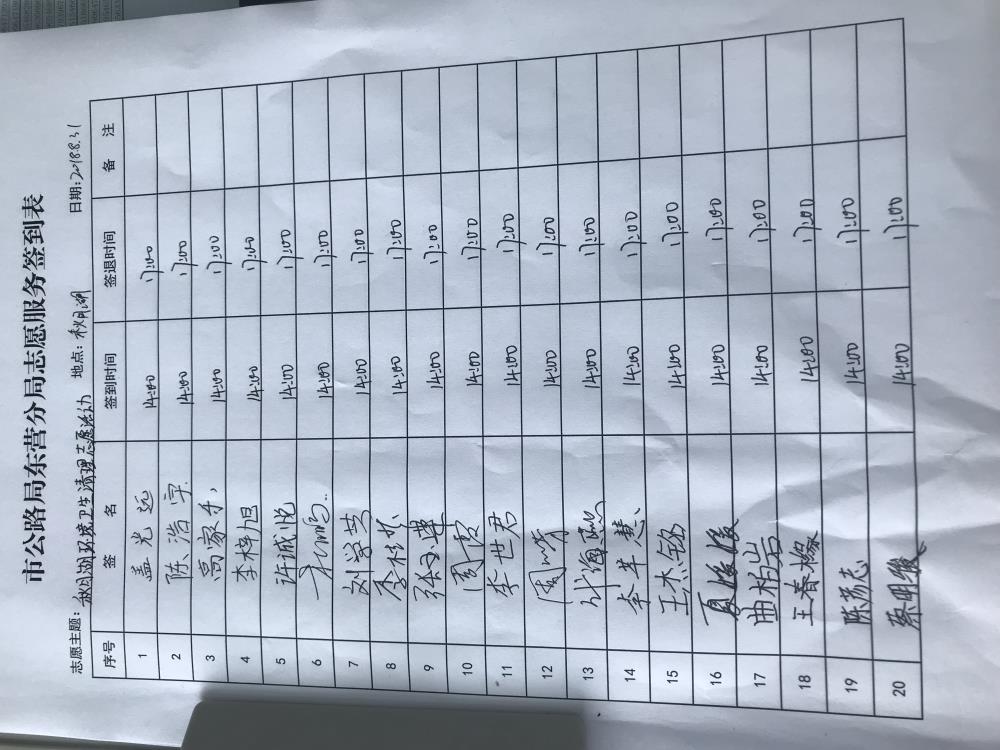 市公路局东营分局志愿服务签到表
志愿主题：秋月湖环境卫生清理志愿活动 地点：秋月湖 日期：2018.8.31
序号 签 名 签到时间 签退时间 备 注
1 盖光远 14:00 17:00
2 陈浩宇 14:00 17:00
3 高家 14:00 17:00
4 李梓旭 14:00 17:00
5 许诚悦 14:00 17:00
6 14:00 17:00
7 刘学英 14:00 17:00
8 李桂 14:00 17:00
9 张 14:00 17:00
10 周霞 14:00 17:00
11 李世君 14:00 17:00
12 周 14:00 17:00
13 海 14:00 17:00
14 李苹慧 14:00 17:00
15 王杰铭 14:00 17:00
16 夏媛媛 14:00 17:00
17 曲柏岩 14:00 17:00
18 王春 14:00 17:00
19 陈芳志 14:00 17:00
20 蔡明俊 14:00 17:00